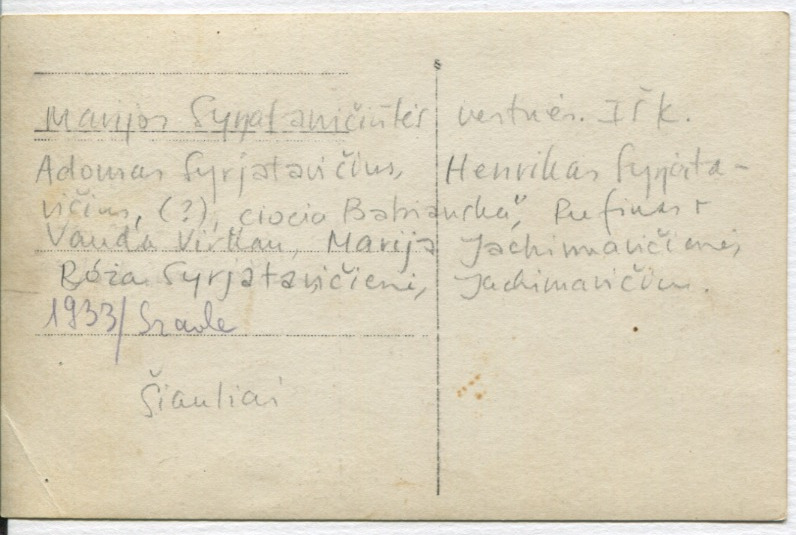 Marijos Syrjatavičiūtės vestuės. Iš k.
Adomas Syrjatavičius, Henrikas Syrjata-
vičius, (?), ciocia Babianska", Rufinas +
Vanda Virkau, Marija Jachimavičienė,
Róża Syrjatavičienė, Jachimavičius.
1933/Szavle
Šiauliai